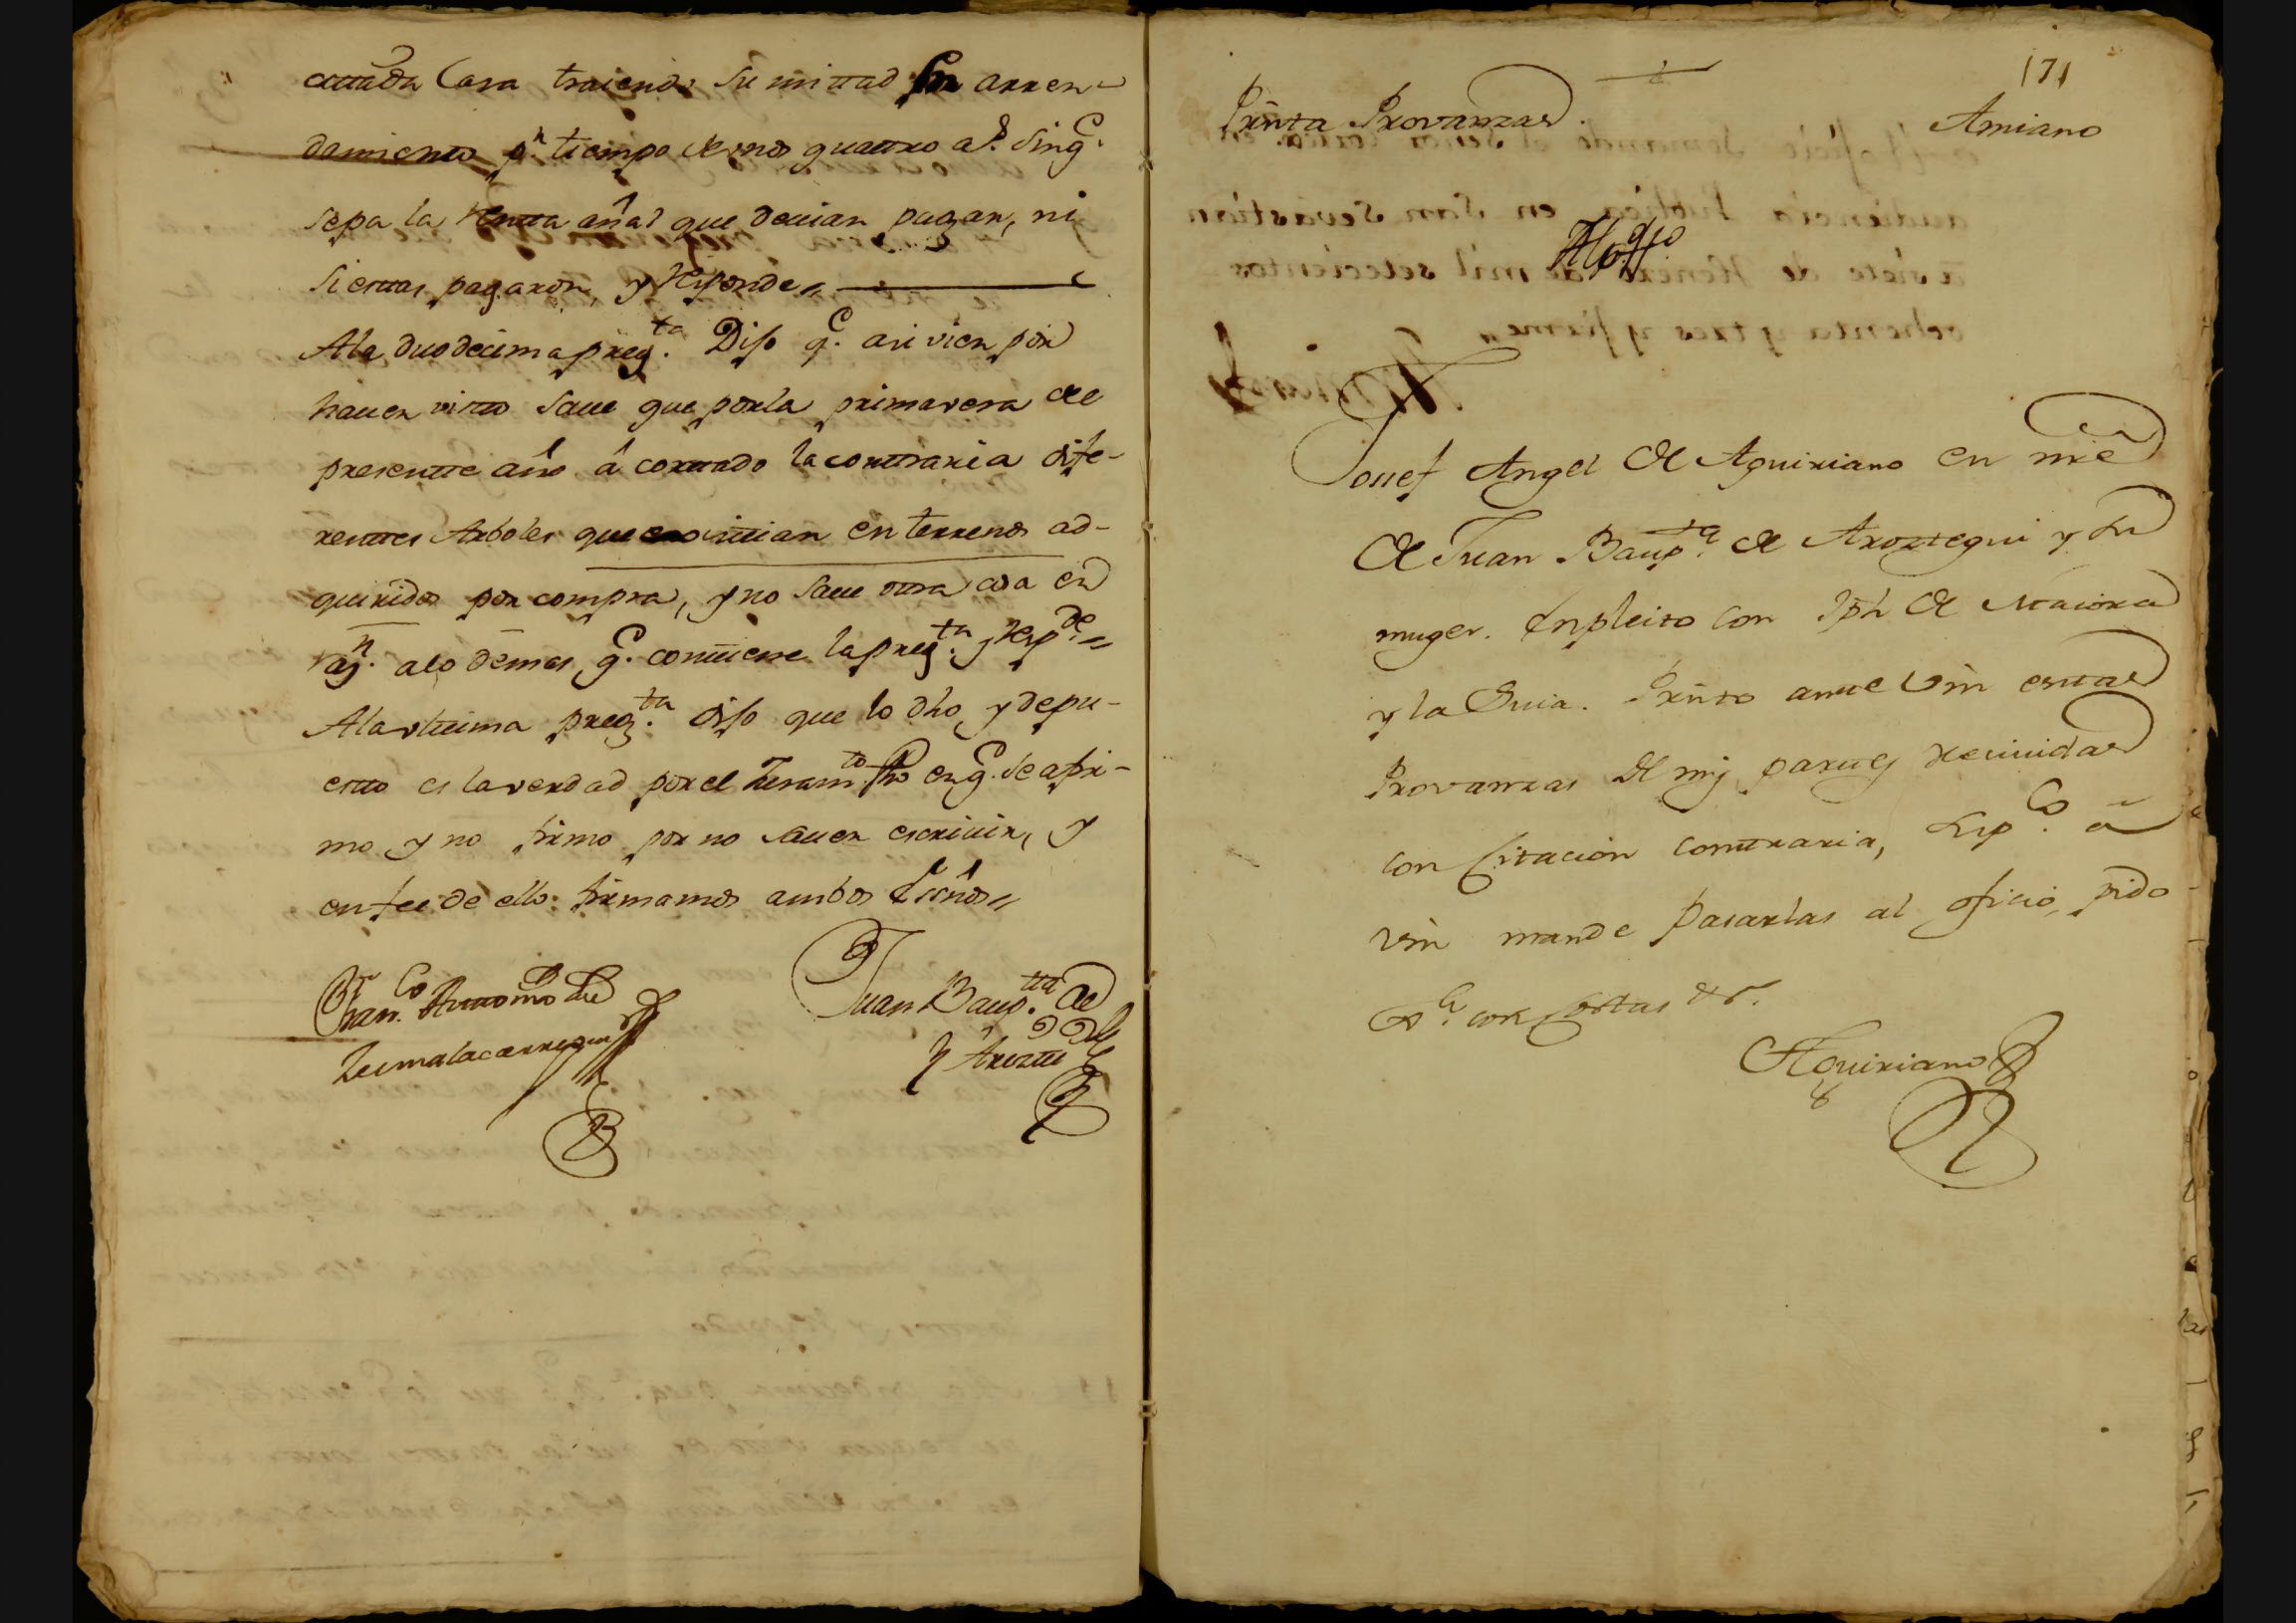 cittada Casa traiendo su mittad en arren-
damiento p.r tiempo de unos quattro a.s sin q.e
sepa la Rentta añal que deuian pagar, ni
si estas pagaron, y Responde,,
A la duodecima preg.ta Dijo q.e asi vien por
hauer visto saue que por la primavera de
presentte año â corttado la conttraria dife-
renttes Arboles que existtian en terrenos ad-
quiridos por compra, y no saue otra cosa en
raz.n a lo demas q.e conttiene la preg.ta y Resp.de,,
A la vlttima preg.ta dijo que lo dho y depu-
esto es la verdad por el Juram.to fho en q.e se afir-
mo y no firmo por no sauer escriuir, y
en fee de ello firmamos ambos Essnos,,
Fran.co Anttonio de
Zumalacarregui
Juan Baup.tta de
Arozttegui
171
Prnta Provanzas.
Amiano
Al off.o
Josef Angel de Aguiriano en nre
de Juan Baup.ta de Aroztegui y su
muger. En pleito con Jph de Maiora
y la Suia. Prnto antte Vm esttas
Provanzas de mis parttes Receuidas
con Citacion conttraria, Sup.co â
Vm mande pasarlas al oficio, pido
Justt.a con Costas &r.
Aguiriano